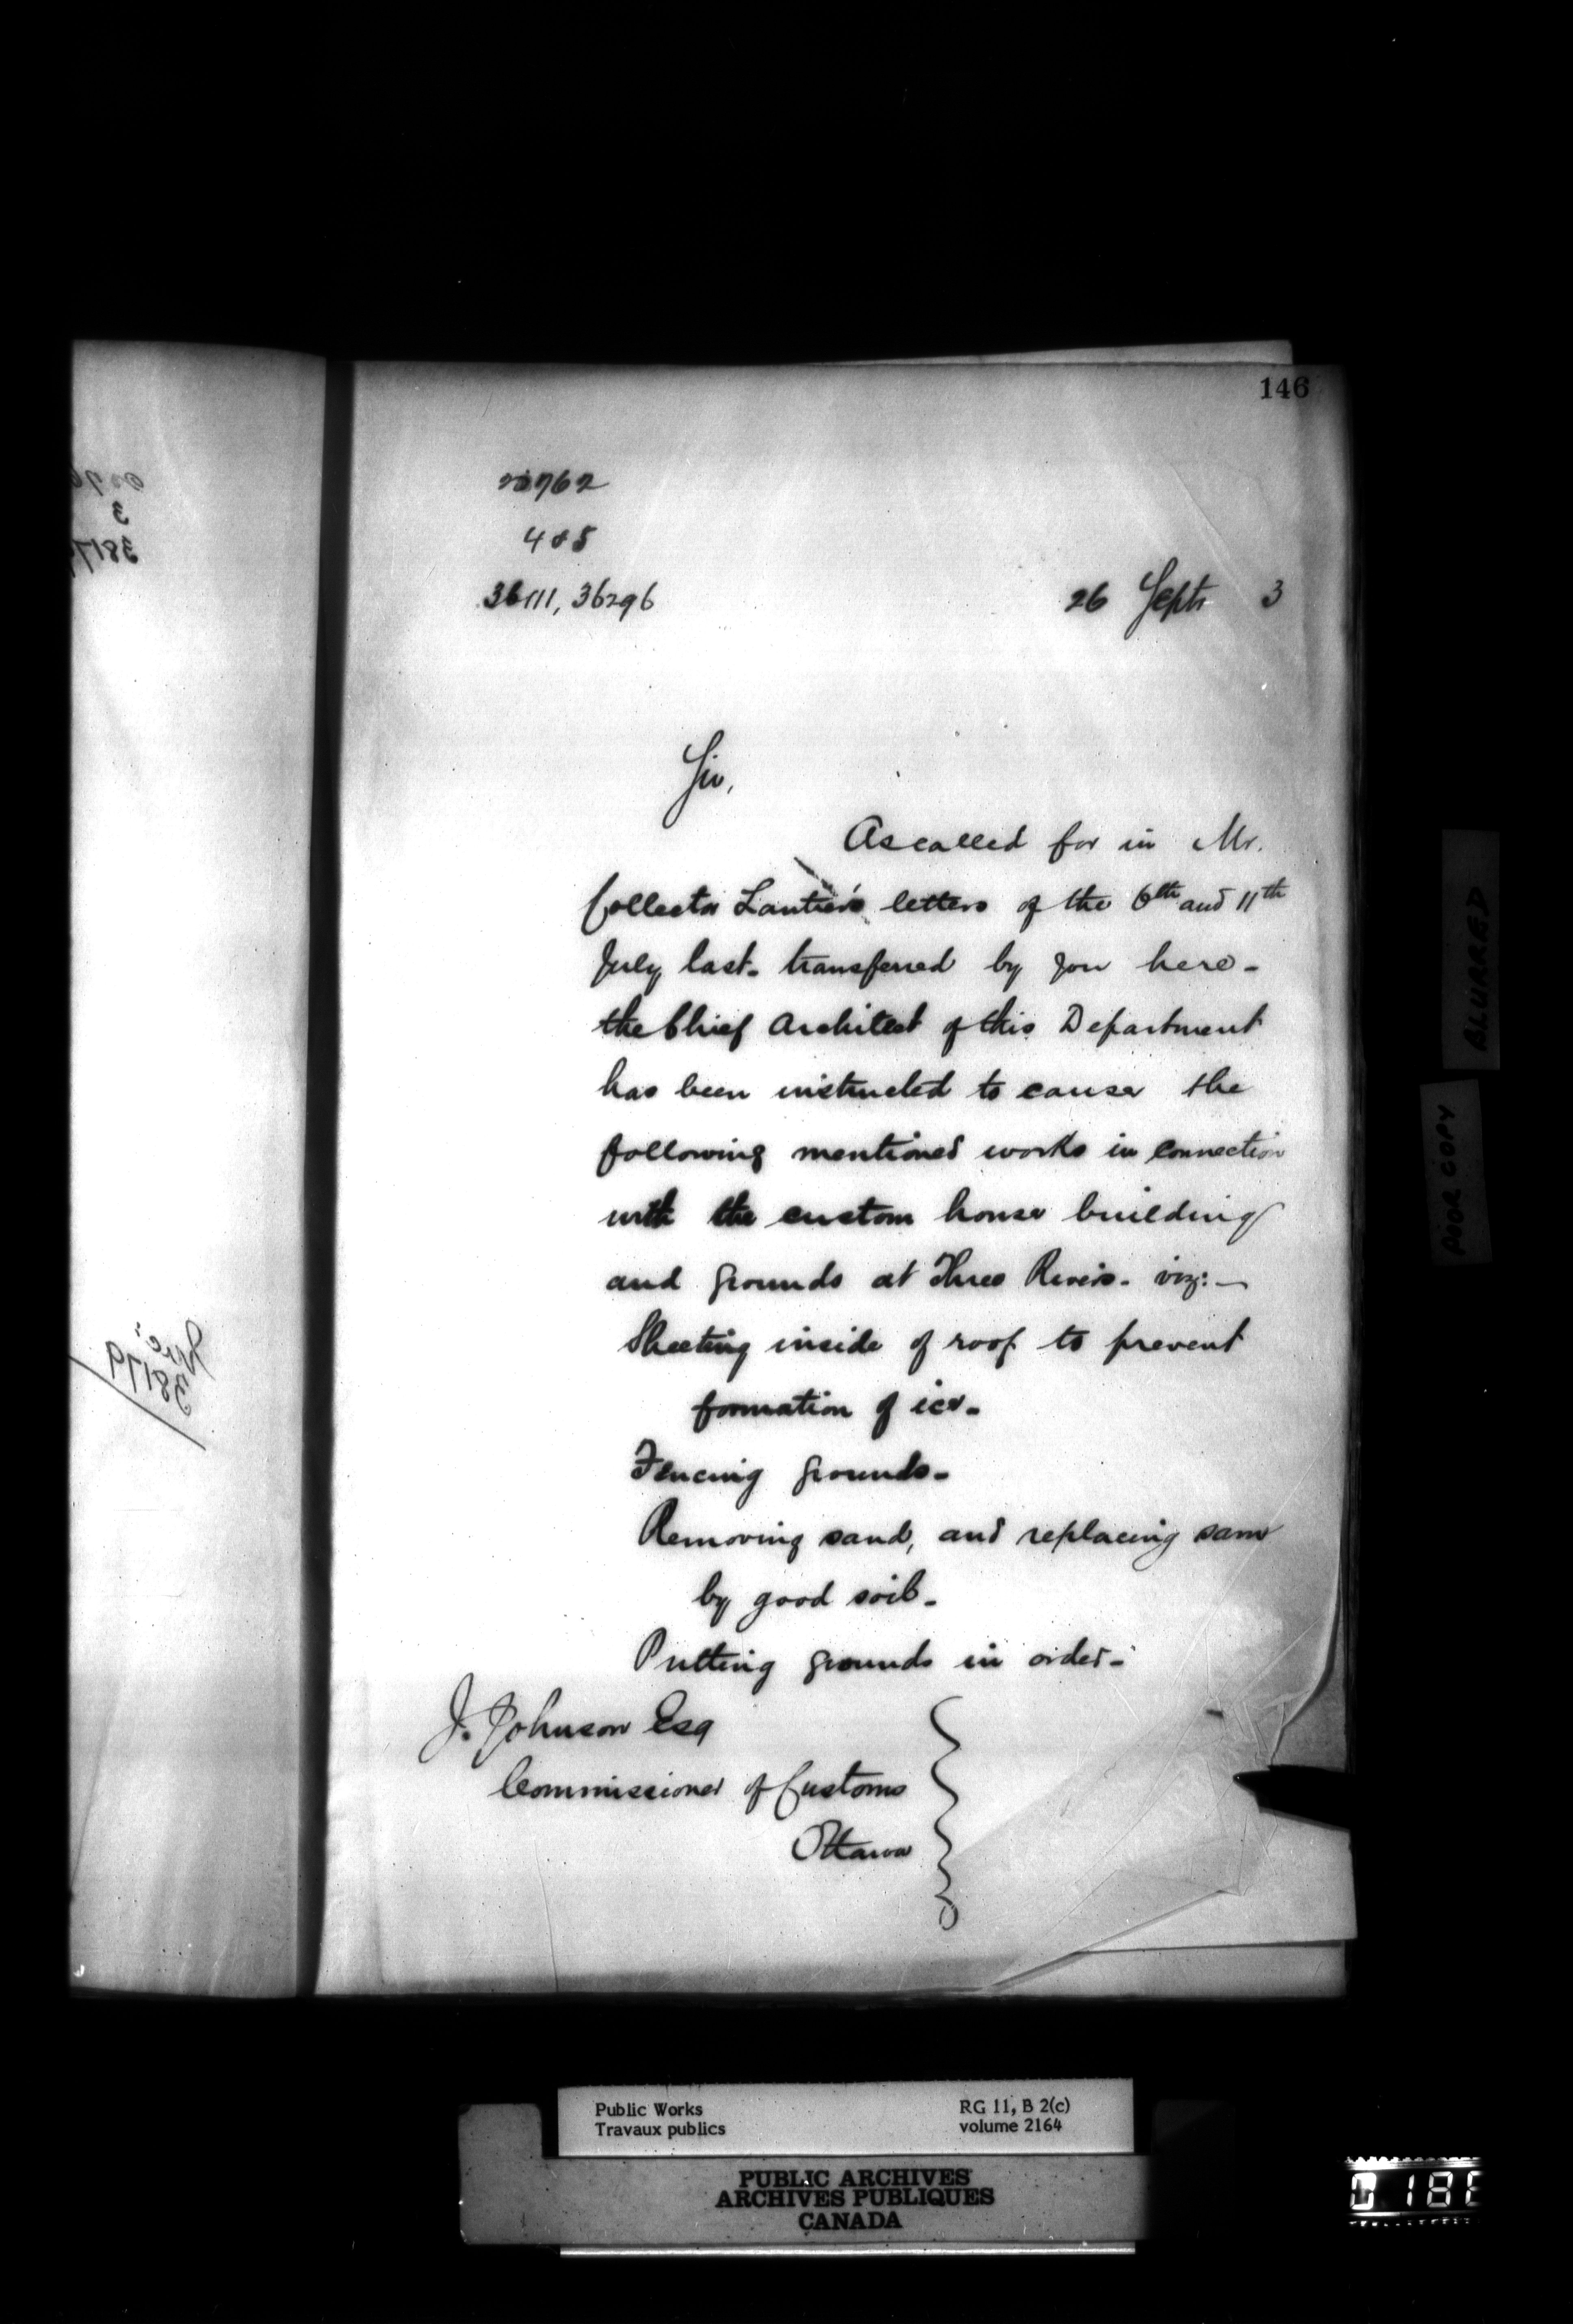 146
20762
4 & 5
36111, 36296
26 Septr 3
Sir,
As called for in Mr.
Collector Lantier's letters of the 6th and 11th
July last. transferred by you here -
the Chief Architect of this Department
has been instructed to cause the
following mentioned works in connection
with the custom house building
and grounds at Three Rivers. viz: —
Sheeting inside of roof to prevent
formation of ice -
Fencing grounds -
Removing sand, and replacing same
by good soil -
Putting grounds in order -
J. Johnson Esq
Commissioner of Customs
Ottawa
3
38179
BLURRED
POOR COPY
Public Works
Travaux publics
RG 11, B 2(c)
volume 2164
PUBLIC ARCHIVES
ARCHIVES PUBLIQUES
CANADA